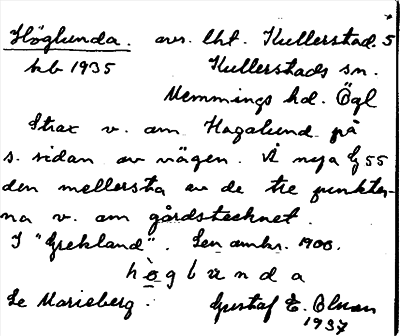 Höglunda. avs. lht. Kullerstad. 5
kb 1935 Kullerstads sn.
Memmings hd. Ögl
Strax v. om Hagalund på
s. sidan av vägen. På nya Eg 55
den mellersta av de tre punkter-
na v. om gårdstecknet.
I "Grekland". Sen omkr. 1900.
hògluǹda
Se Marieberg. Gustaf E. Olson
1937